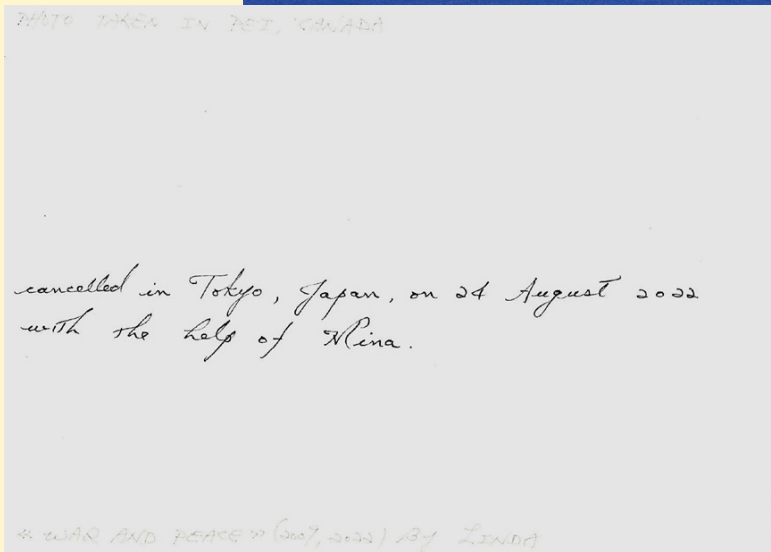 PHOTO TAKEN IN PEI, CANADA
cancelled in Tokyo, Japan, on 24 August 2022
with the help of Mina.
« WAR AND PEACE » (2009, 2022) By LINDA